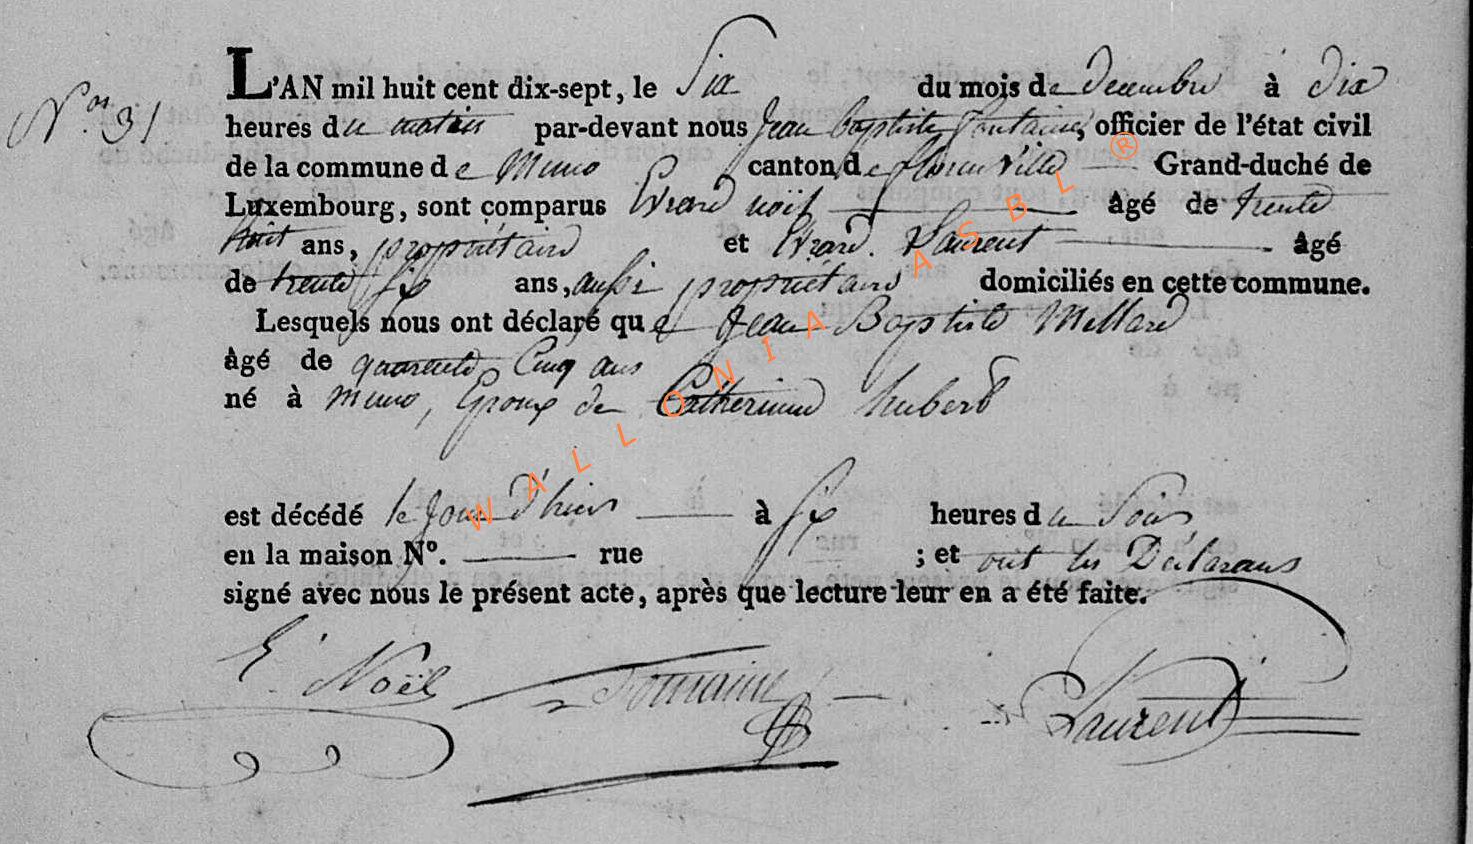 L'AN mil huit cent dix-sept, le Six du mois de decembre à dix
N.os 31
heures du matin par-devant nous Jean baptiste fontaine, officier de l'état civil
de la commune de Muno canton de florenville Grand-duché de
Luxembourg, sont comparus Evrard noël âgé de trente
huit ans, propriétaire et Evrard Laurent âgé
de trente six ans, aussi propriétaire domiciliés en cette commune.
Lesquels nous ont déclaré que Jean Baptiste Millard
âgé de quarente Cinq ans
né à muno, Epoux de Catherinne hubert
est décédé le Jour d'hier à six heures du Soir
en la maison N°. rue ; et ont les Déclarans
signé avec nous le présent acte, après que lecture leur en a été faite.
E. Noël Fontaine Laurent
WALLONIA ASBL ®